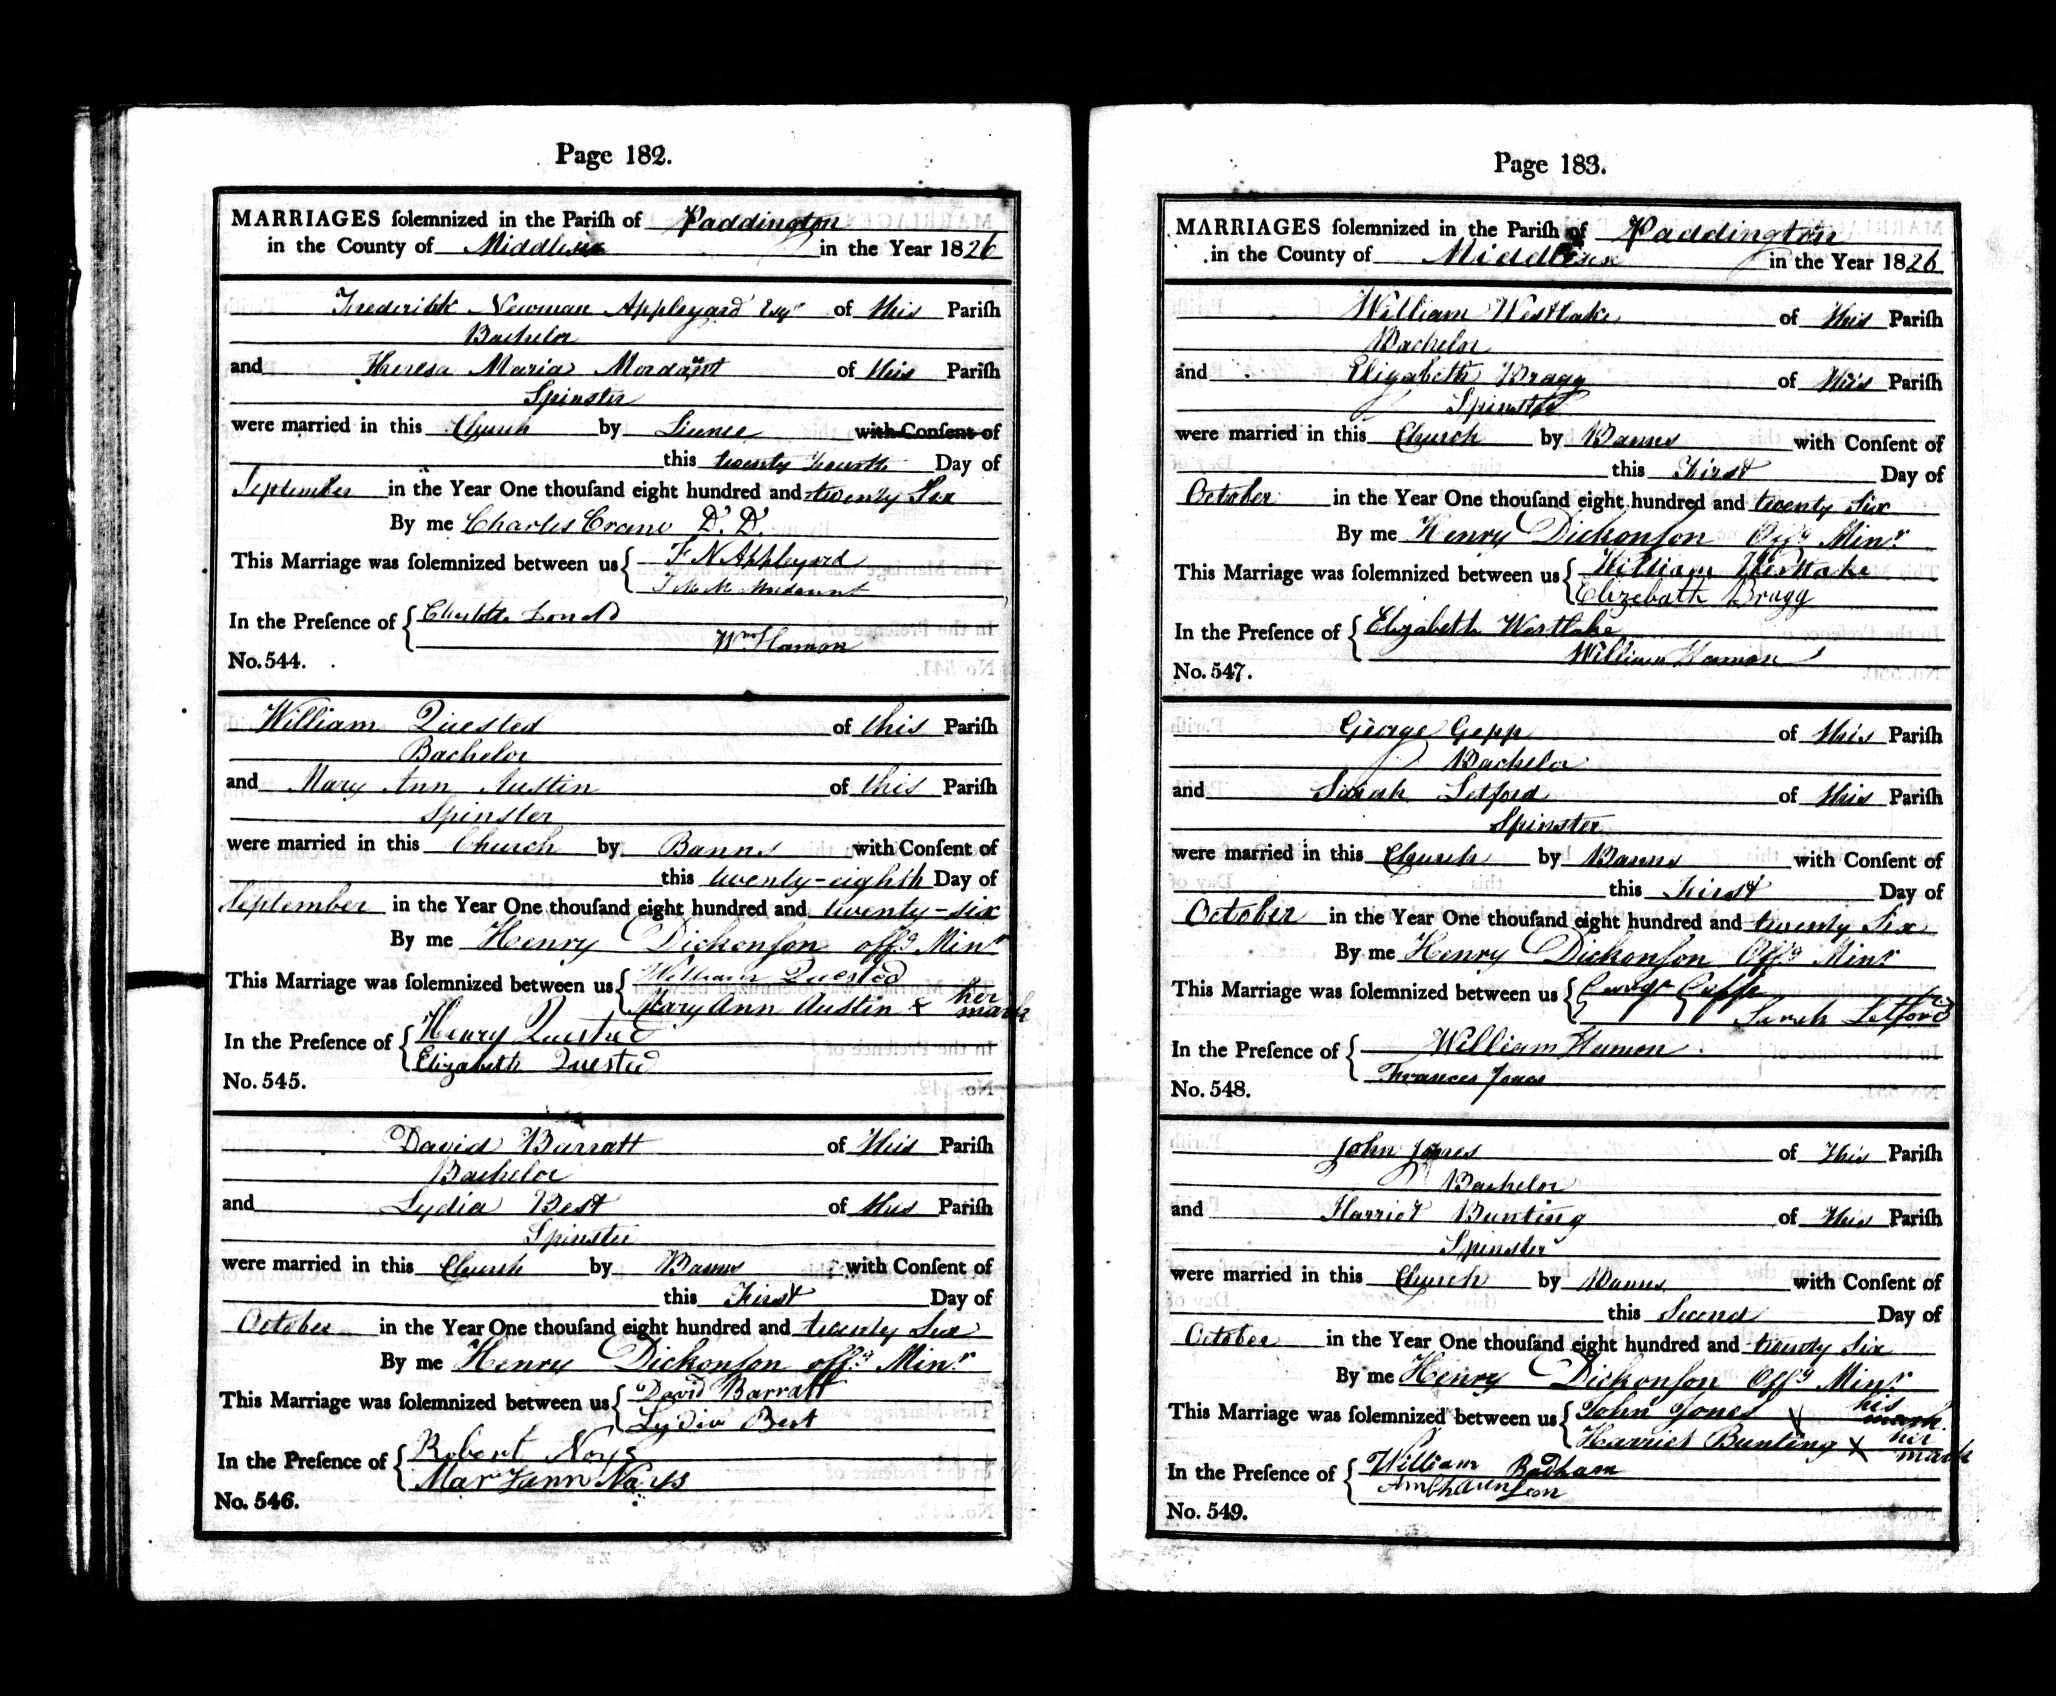 Page 182.
MARRIAGES ſolemnized in the Pariſh of Paddington
in the County of Middlesex in the Year 1826
Frederick Newman Appleyard Esqr of this Pariſh
Bachelor
and Theresa Maria Mordaunt of this Pariſh
Spinster
were married in this Church by Licence with Conſent of
this twenty fourth Day of
September in the Year One thouſand eight hundred and twenty Six
By me Charles Crane D.D.
This Marriage was ſolemnized between us { F N Appleyard
T M Mordaunt
In the Preſence of { Charlotte
Wm Hamon
No. 544.
William Quested of this Pariſh
Bachelor
and Mary Ann Austin of this Pariſh
Spinster
were married in this Church by Banns with Conſent of
this twenty-eighth Day of
September in the Year One thouſand eight hundred and twenty-six
By me Henry Dickonſon offg Minr
This Marriage was ſolemnized between us { William Quested
Mary Ann Austin x her mark
In the Preſence of { Henry Quested
Elizabeth Quested
No. 545.
David Barratt of this Pariſh
Bachelor
and Lydia Best of this Pariſh
Spinster
were married in this Church by Banns with Conſent of
this First Day of
October in the Year One thouſand eight hundred and twenty Six
By me Henry Dickonſon offg Minr
This Marriage was ſolemnized between us { David Barratt
Lydia Best
In the Preſence of { Robert Noys
Mar Yann Noys
No. 546.
Page 183.
MARRIAGES ſolemnized in the Pariſh of Paddington
in the County of Middlesex in the Year 1826
William Westlake of this Pariſh
Bachelor
and Elizabeth Bragg of this Pariſh
Spinster
were married in this Church by Banns with Conſent of
this First Day of
October in the Year One thouſand eight hundred and twenty Six
By me Henry Dickonſon Offg Minr
This Marriage was ſolemnized between us { William Westlake
Elizebath Bragg
In the Preſence of { Elizabeth Westlake
William Hamon
No. 547.
George Gepp of this Pariſh
Bachelor
and Sarah Letford of this Pariſh
Spinster
were married in this Church by Banns with Conſent of
this First Day of
October in the Year One thouſand eight hundred and twenty Six
By me Henry Dickonſon Offg Minr
This Marriage was ſolemnized between us { George
Sarah Letford
In the Preſence of { William Hamon
Frances Jones
No. 548.
John Jones of this Pariſh
Bachelor
and Harriet Bunting of this Pariſh
Spinster
were married in this Church by Banns with Conſent of
this Second Day of
October in the Year One thouſand eight hundred and twenty Six
By me Henry Dickonſon Offg Minr
This Marriage was ſolemnized between us { John Jones x his mark
Harriet Bunting x her mark
In the Preſence of { William Badham
No. 549.